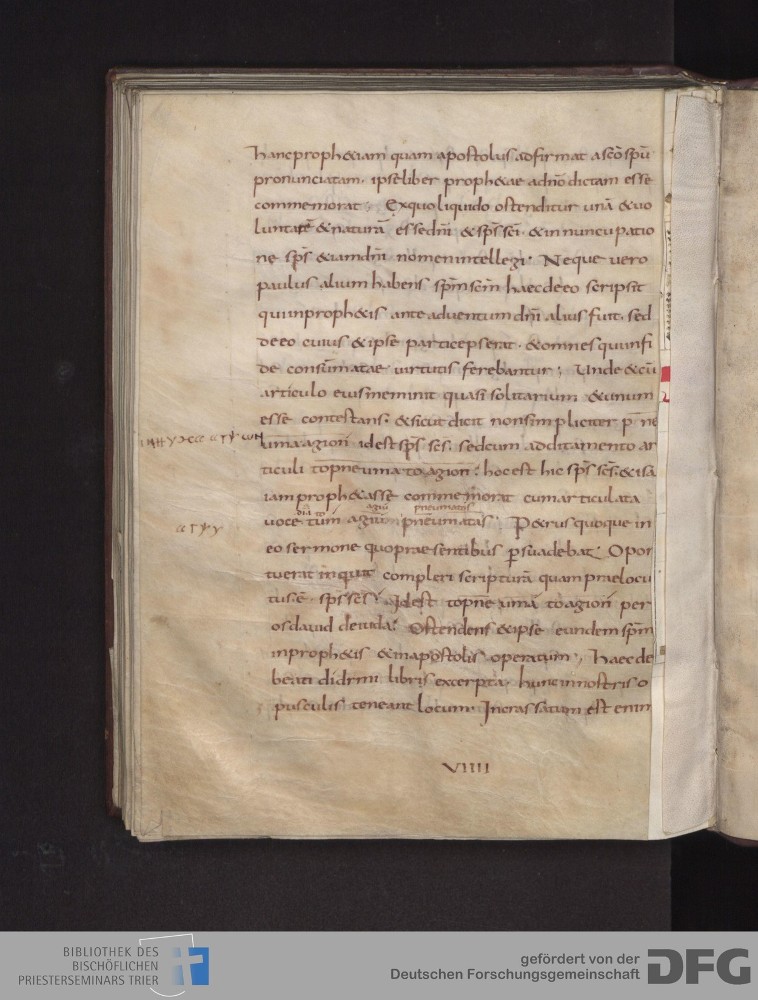 hanc proph&iam quam apostolus. adfirmat a sc̄o sp̄u
pronunciatam. ipse liber proph&ae adn̄o dictam esse
commemorat; Ex quo liquido ostenditur unā & uo
luntatē & naturā esse dn̄i & sp̄s sc̄i. & in nuncupatio
ne sp̄s &iam dn̄i nomen intellegi. Neque uero
paulus alium habens sp̄m sc̄m haec de eo scripsit
qui in proph&is ante aduentum dn̄i alius fuit. sed
de eo cuius & ipse particeps erat. & omnes qui in fi
de consūmatae uirtutis ferebantur; Unde & cū
articulo eius meminit quasi solitarium & unum
esse contestans. & sicut dicit non simpliciter p̄ ne
uma agion idest sp̄s sc̄s. sed cum additamento ar
ticuli to pneuma to agion. hoc est hic sp̄s sc̄s. & isa
iam proph&asse commemorat cum articulata
dia to agiu pneumatos
uoce tum agium pneumatas; P&rus quoque in
eo sermone quo praesentibus p̱suadebat. Opor
tuerat inquit compleri scripturā quam praelocu
tus. ē. sp̄s sc̄s. Idest to pneumā to agion per
os dauid de iuda. Ostendens & ipse eundem sp̄m
in proph&is & in apostolis operatum; Haec de
beati didimi libris excerpta. hunc in nostris o
pusculis teneant locum. Incrassatum est enim
ατψγ
VIIII
BIBLIOTHEK DES
BISCHÖFLICHEN
PRIESTERSEMINARS TRIER
gefördert von der
Deutschen Forschungsgemeinschaft DFG